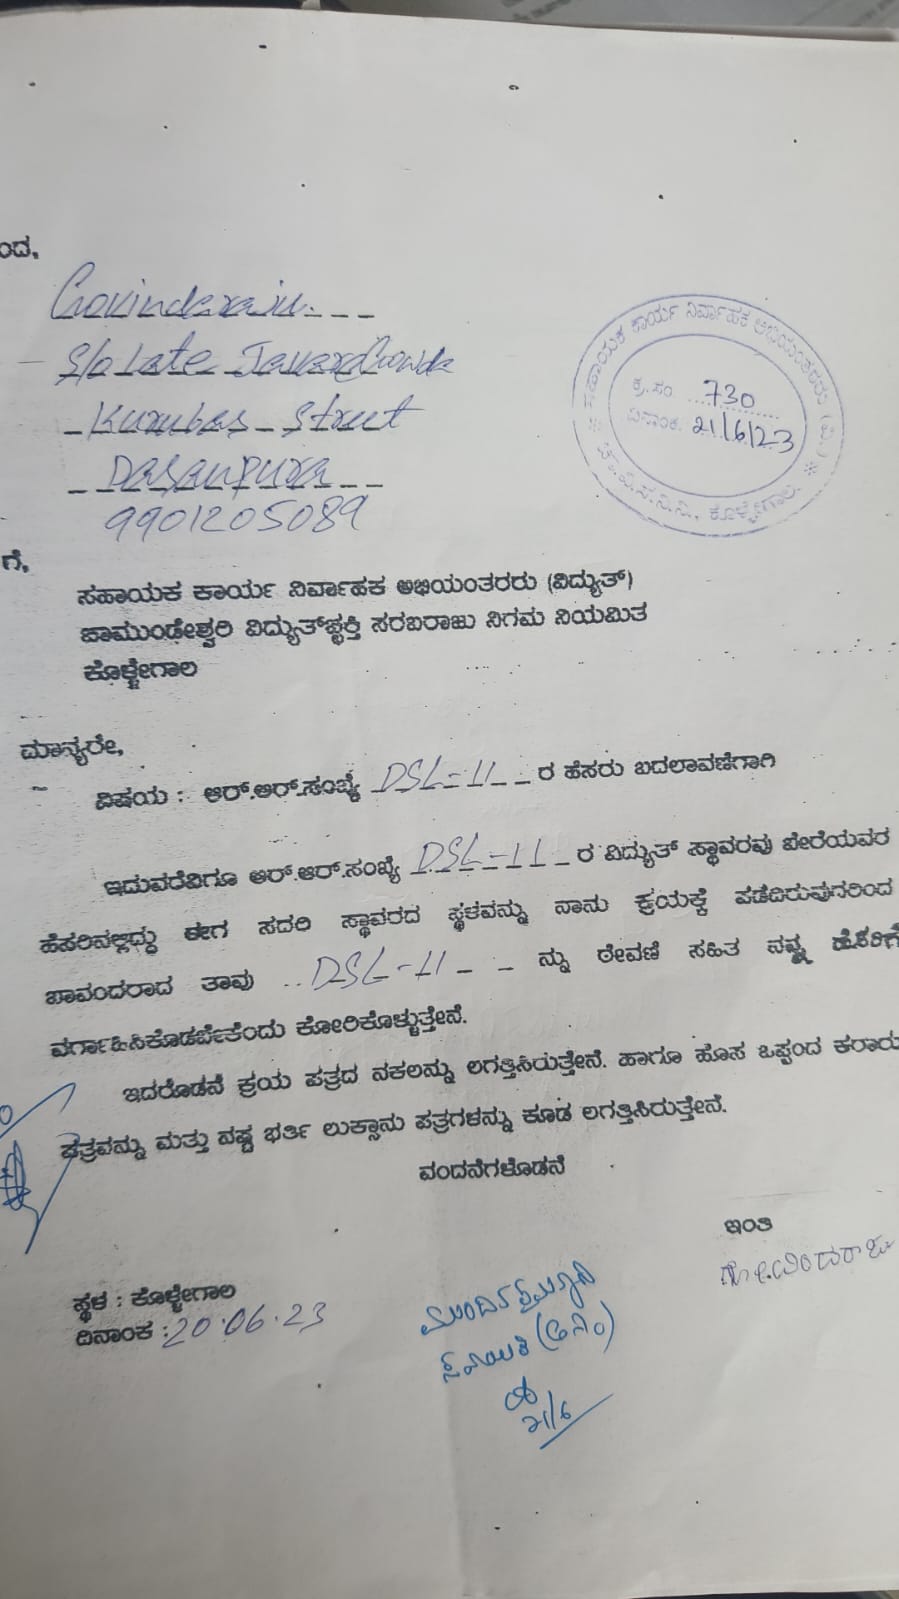 ಂದ,
Govindaraju
S/o Late JavaraGowda
Kurubas Street
Dasanpura
9901205089
ಸಹಾಯಕ ಕಾರ್ಯ ನಿರ್ವಾಹಕ ಅಭಿಯಂತರರು (ವಿ.)
ಕ್ರ.ಸಂ 730
ದಿನಾಂಕ. 21/6/23
ಚಾ.ವಿ.ಸ.ನಿ.ನಿ., ಕೊಳ್ಳೇಗಾಲ.
ಗೆ,
ಸಹಾಯಕ ಕಾರ್ಯ ನಿರ್ವಾಹಕ ಅಭಿಯಂತರರು (ವಿದ್ಯುತ್)
ಚಾಮುಂಡೇಶ್ವರಿ ವಿದ್ಯುತ್‌ಚ್ಛಕ್ತಿ ಸರಬರಾಜು ನಿಗಮ ನಿಯಮಿತ
ಕೊಳ್ಳೇಗಾಲ
ಮಾನ್ಯರೇ,
ವಿಷಯ : ಆರ್.ಆರ್.ಸಂಖ್ಯೆ DSL-11 ರ ಹೆಸರು ಬದಲಾವಣೆಗಾಗಿ
ಇದುವರೆವಿಗೂ ಆರ್.ಆರ್.ಸಂಖ್ಯೆ DSL-11 ರ ವಿದ್ಯುತ್ ಸ್ಥಾವರವು ಬೇರೆಯವರ
ಹೆಸರಿನಲ್ಲಿದ್ದು ಈಗ ಸದರಿ ಸ್ಥಾವರದ ಸ್ಥಳವನ್ನು ನಾನು ಕ್ರಯಕ್ಕೆ ಪಡೆದಿರುವುದರಿಂದ
ಬಾವಂದರಾದ ತಾವು DSL-11 ನ್ನು ಠೇವಣಿ ಸಹಿತ ನನ್ನ ಹೆಸರಿಗೆ
ವರ್ಗಾಹಿಸಿಕೊಡಬೇಕೆಂದು ಕೋರಿಕೊಳ್ಳುತ್ತೇನೆ.
ಇದರೊಡನೆ ಕ್ರಯ ಪತ್ರದ ನಕಲನ್ನು ಲಗತ್ತಿಸಿರುತ್ತೇನೆ. ಹಾಗೂ ಹೊಸ ಒಪ್ಪಂದ ಕರಾರು
ಪತ್ರವನ್ನು ಮತ್ತು ನಷ್ಟ ಭರ್ತಿ ಲುಕ್ಸಾನು ಪತ್ರಗಳನ್ನು ಕೂಡ ಲಗತ್ತಿಸಿರುತ್ತೇನೆ.
ವಂದನೆಗಳೊಡನೆ
ಇಂತಿ
ಗೋವಿಂದರಾಜು
ಸ್ಥಳ : ಕೊಳ್ಳೇಗಾಲ
ದಿನಾಂಕ : 20.06.23
21/6